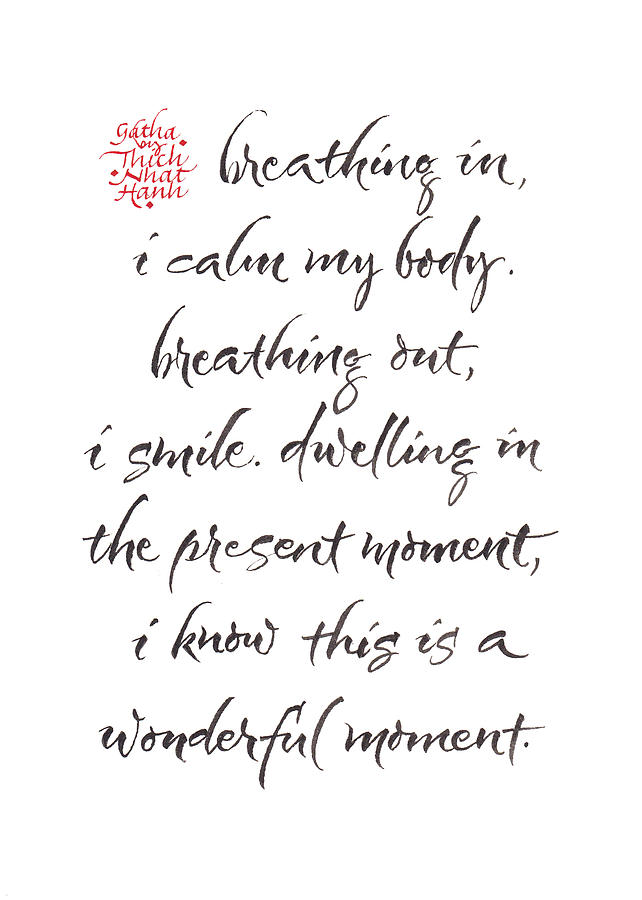 Gatha
by
Thich
Nhat
Hanh
breathing in,
i calm my body.
breathing out,
i smile. dwelling in
the present moment,
i know this is a
wonderful moment.